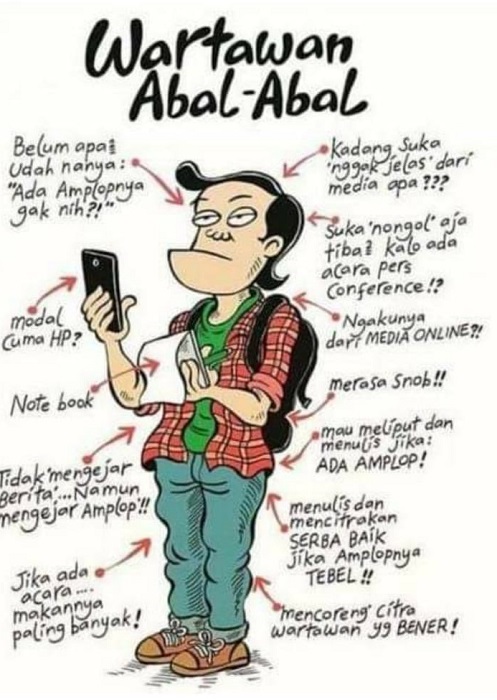 Wartawan
Abal-Abal
Belum apa²
Udah nanya:
"Ada Amplopnya
gak nih?!"
Kadang Suka
'nggak jelas' dari
media apa ???
Suka 'nongol' aja
tiba² kalo ada
acara pers
Conference!?
modal
Cuma HP?
Ngakunya
dari MEDIA ONLINE?!
Note book
merasa Snob!!
mau meliput dan
menulis jika:
ADA AMPLOP!
Tidak 'mengejar
Berita'... Namun
mengejar Amplop'!!
menulis dan
mencitrakan
SERBA BAIK
jika Amplopnya
TEBEL!!
Jika ada
acara....
makannya
paling banyak!
'mencoreng' citra
wartawan yg BENER!